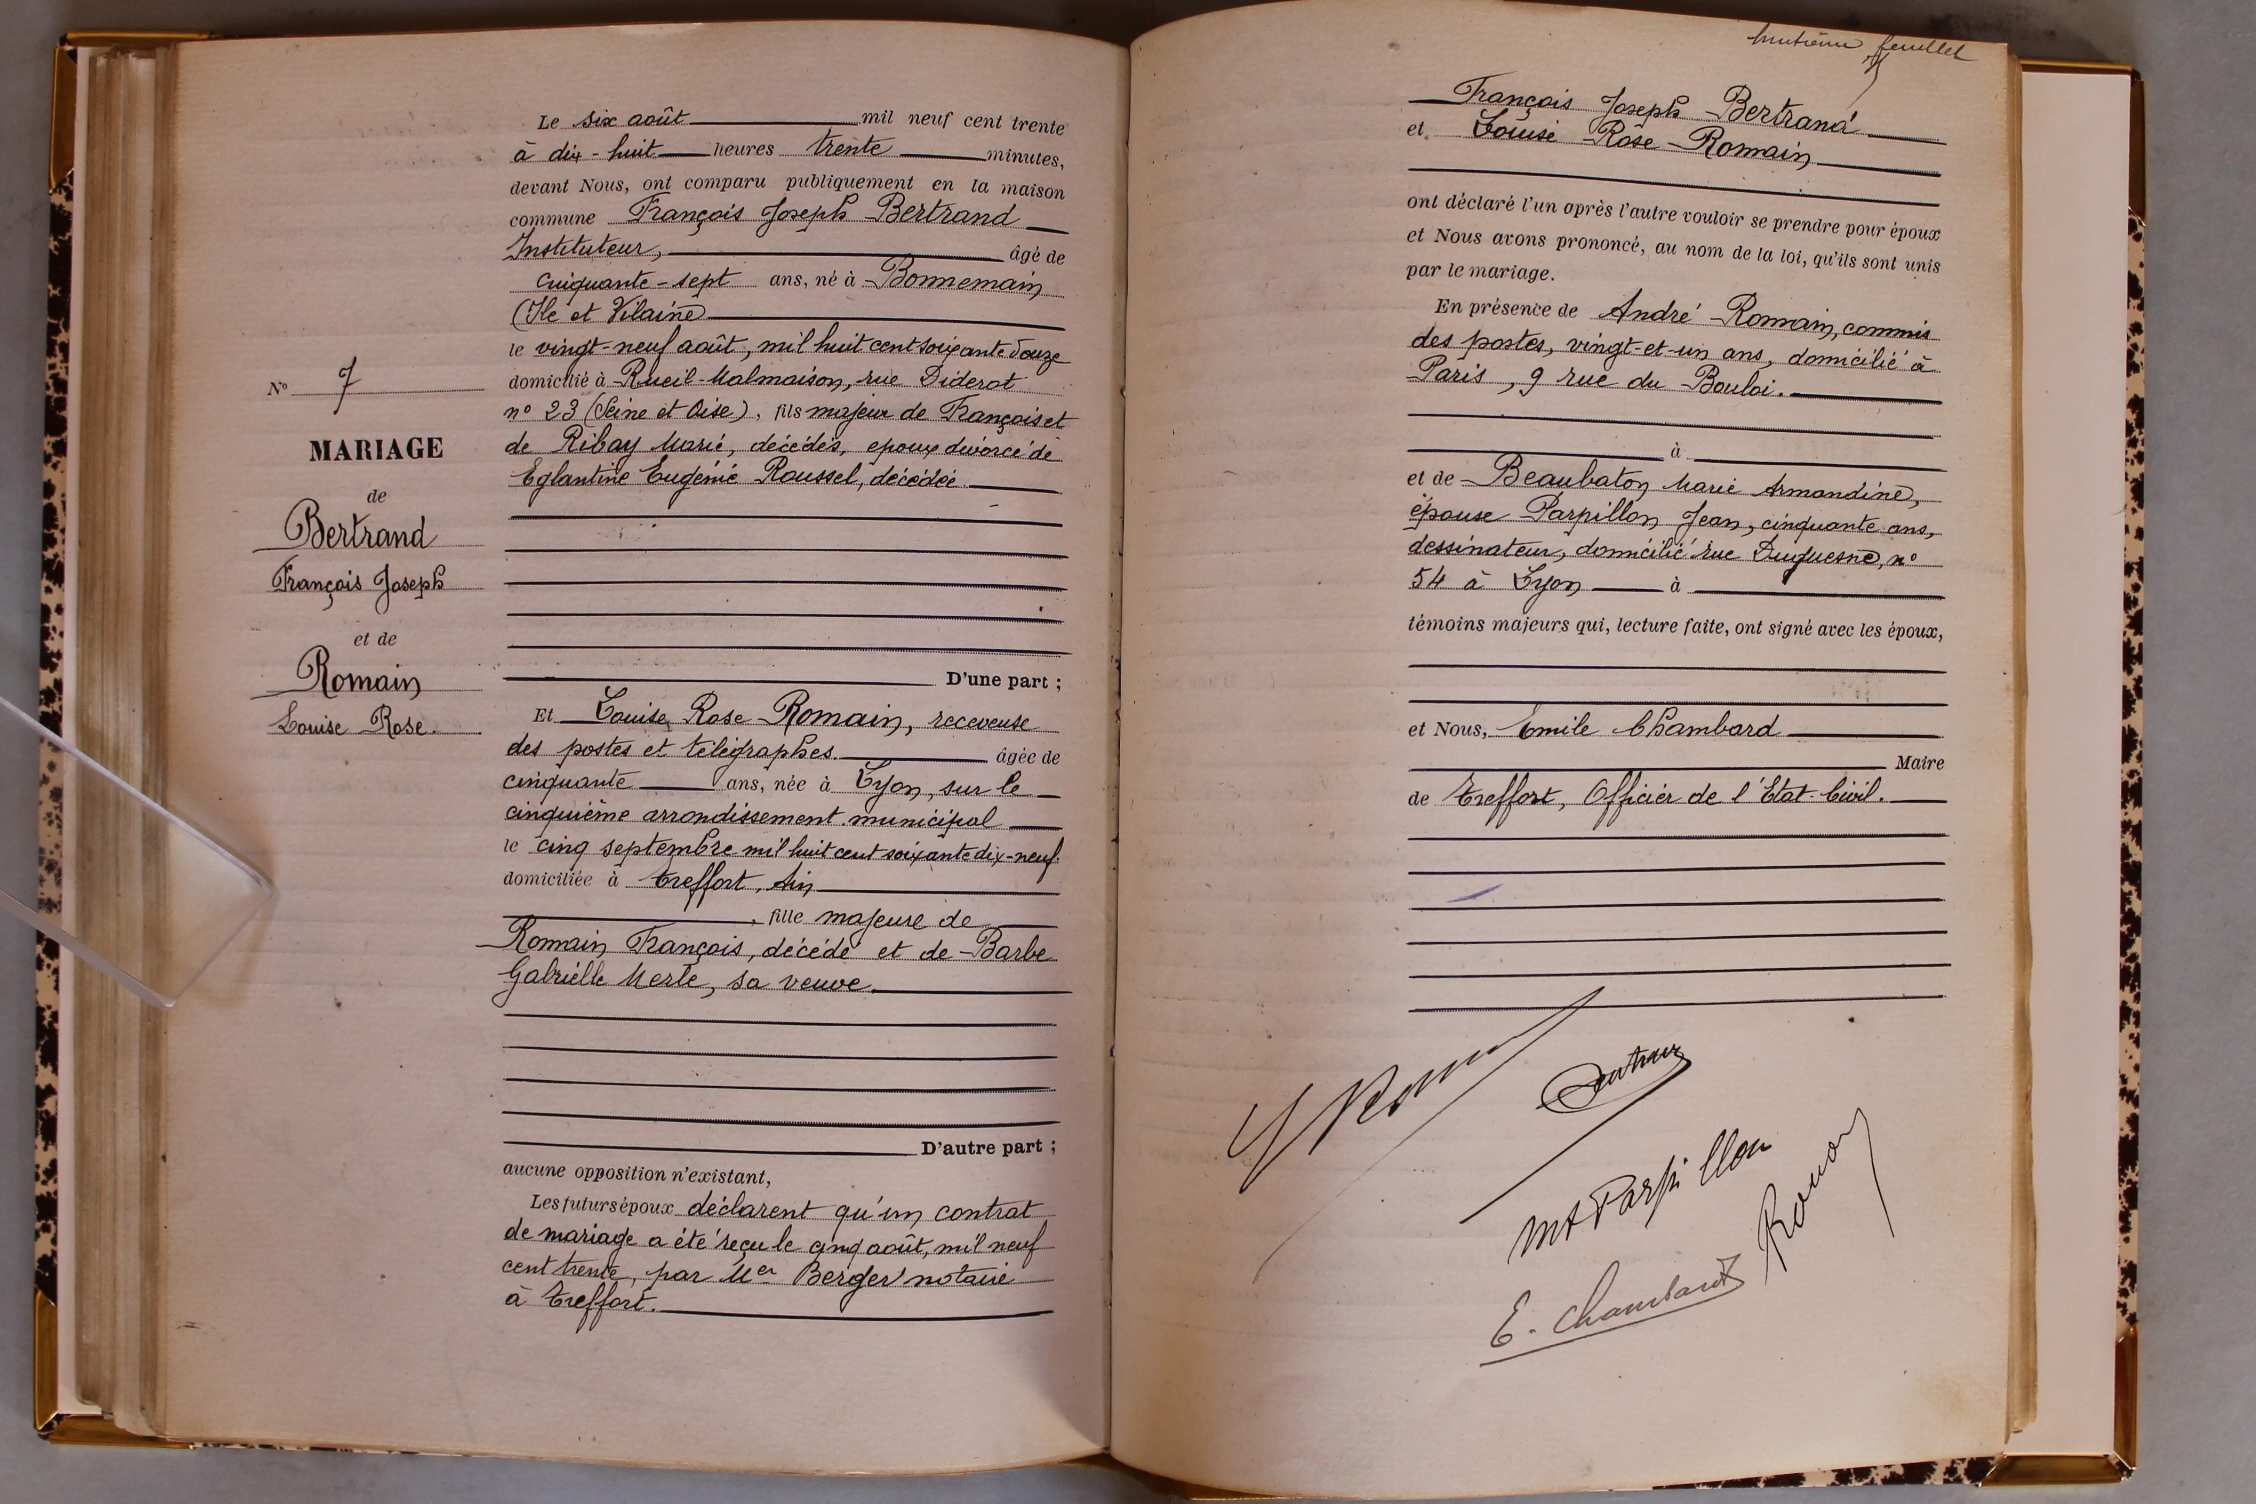 N° 7
MARIAGE
de
Bertrand
François Joseph
et de
Romain
Louise Rose.
Le six août mil neuf cent trente
à dix-huit heures trente minutes,
devant Nous, ont comparu publiquement en la maison
commune François Joseph Bertrand
Instituteur, âgé de
cinquante-sept ans, né à Bonnemain
(Ile et Vilaine
le vingt-neuf août, mil huit cent soixante douze
domicilié à Rueil-Malmaison, rue Diderot
n° 23 (Seine et Oise), fils majeur de François et
de Ribay Marie, décédés, epoux divorcé de
Eglantine Eugénie Roussel, décédée.
D'une part ;
Et Louise Rose Romain, receveuse
des postes et télégraphes. âgée de
cinquante ans, née à Lyon, sur le
cinquième arrondissement municipal
le cinq septembre mil huit cent soixante dix-neuf.
domiciliée à Treffort, Ain
, fille majeure de
Romain François, décédé et de Barbe
Gabrielle Merle, sa veuve.
D'autre part ;
aucune opposition n'existant,
Les futurs époux déclarent qu'un contrat
de mariage a été reçu le cinq août, mil neuf
cent trente, par Mer Berger notaire
à Treffort.
huitième feuillet
François Joseph Bertrand
et Louise Rose Romain
ont déclaré l'un après l'autre vouloir se prendre pour époux
et Nous avons prononcé, au nom de la loi, qu'ils sont unis
par le mariage.
En présence de André Romain, commis
des postes, vingt-et-un ans, domicilié à
Paris, 9 rue du Bouloi.
à
et de Beaubaton Marie Armandine,
épouse Parpillon Jean, cinquante ans,
dessinateur, domicilié rue Duguesne, n°
54 à Lyon à
témoins majeurs qui, lecture faite, ont signé avec les époux,
et Nous, Emile Chambard
Maire
de Treffort, Officier de l'Etat-Civil.
MA Parpillon
E. Chambard